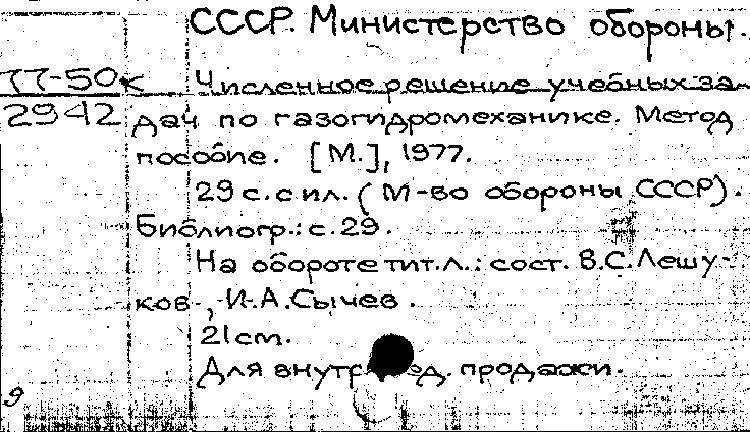 СССР. Министерство обороны.
77-50к Численное решение учебных за-
2942 дач по газогидромеханике. Метод
пособие. [М.], 1977.
29 с. с ил. (М-во обороны СССР).
Библиогр.: с. 29.
На обороте тит. л.: сост. В.С. Лешу-
ков, И.А. Сычев.
21 cm.
Для продажи.
9